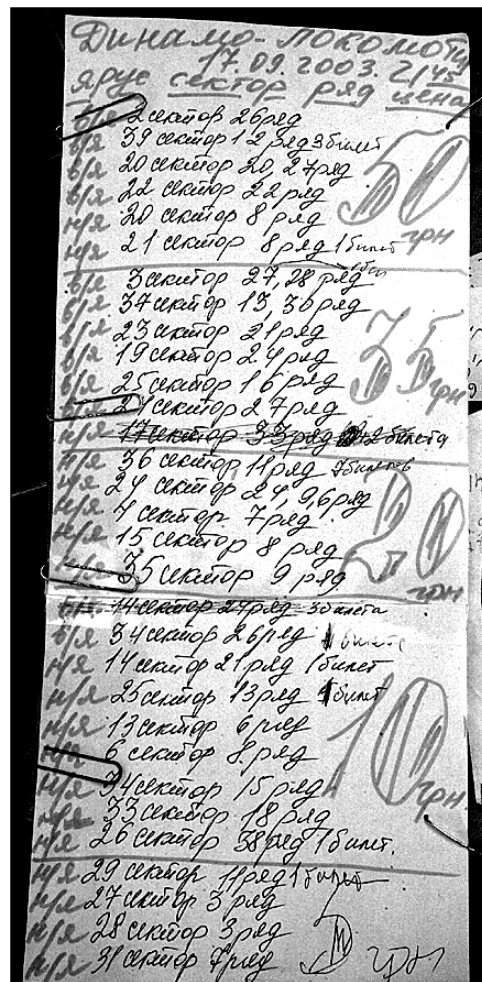 Динамо - Локомотив
17.09.2003. 21 45
ярус сектор ряд цена
в/я 2 сектор 26 ряд
в/я 39 сектор 12 ряд 3 билет
в/я 20 сектор 20, 27 ряд
в/я 22 сектор 22 ряд
н/я 20 сектор 8 ряд
н/я 21 сектор 8 ряд 1 билет
50 грн
в/я 3 сектор 27, 28 ряд
в/я 34 сектор 13, 30 ряд
в/я 23 сектор 21 ряд
в/я 19 сектор 24 ряд
в/я 25 сектор 16 ряд
в/я 21 сектор 27 ряд
35 грн
н/я 17 сектор 33 ряд 2 билета
н/я 36 сектор 11 ряд 7 билетов
н/я 24 сектор 24, 26 ряд
н/я 4 сектор 7 ряд
н/я 15 сектор 8 ряд
н/я 35 сектор 9 ряд
20 грн
14 сектор 27 ряд 3 билета
в/я 34 сектор 26 ряд
н/я 14 сектор 21 ряд 1 билет
н/я 25 сектор 13 ряд 1 билет
н/я 13 сектор 6 ряд
н/я 6 сектор 8 ряд
н/я 34 сектор 15 ряд
н/я 33 сектор 18 ряд
н/я 26 сектор 38 ряд 1 билет.
10 грн
н/я 29 сектор 11 ряд 1 билет
н/я 27 сектор 3 ряд
н/я 28 сектор 3 ряд
н/я 31 сектор 7 ряд
5 грн